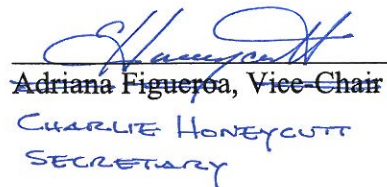 CHoneycutt
Adriana Figueroa, Vice-Chair
CHARLIE HONEYCUTT
SECRETARY